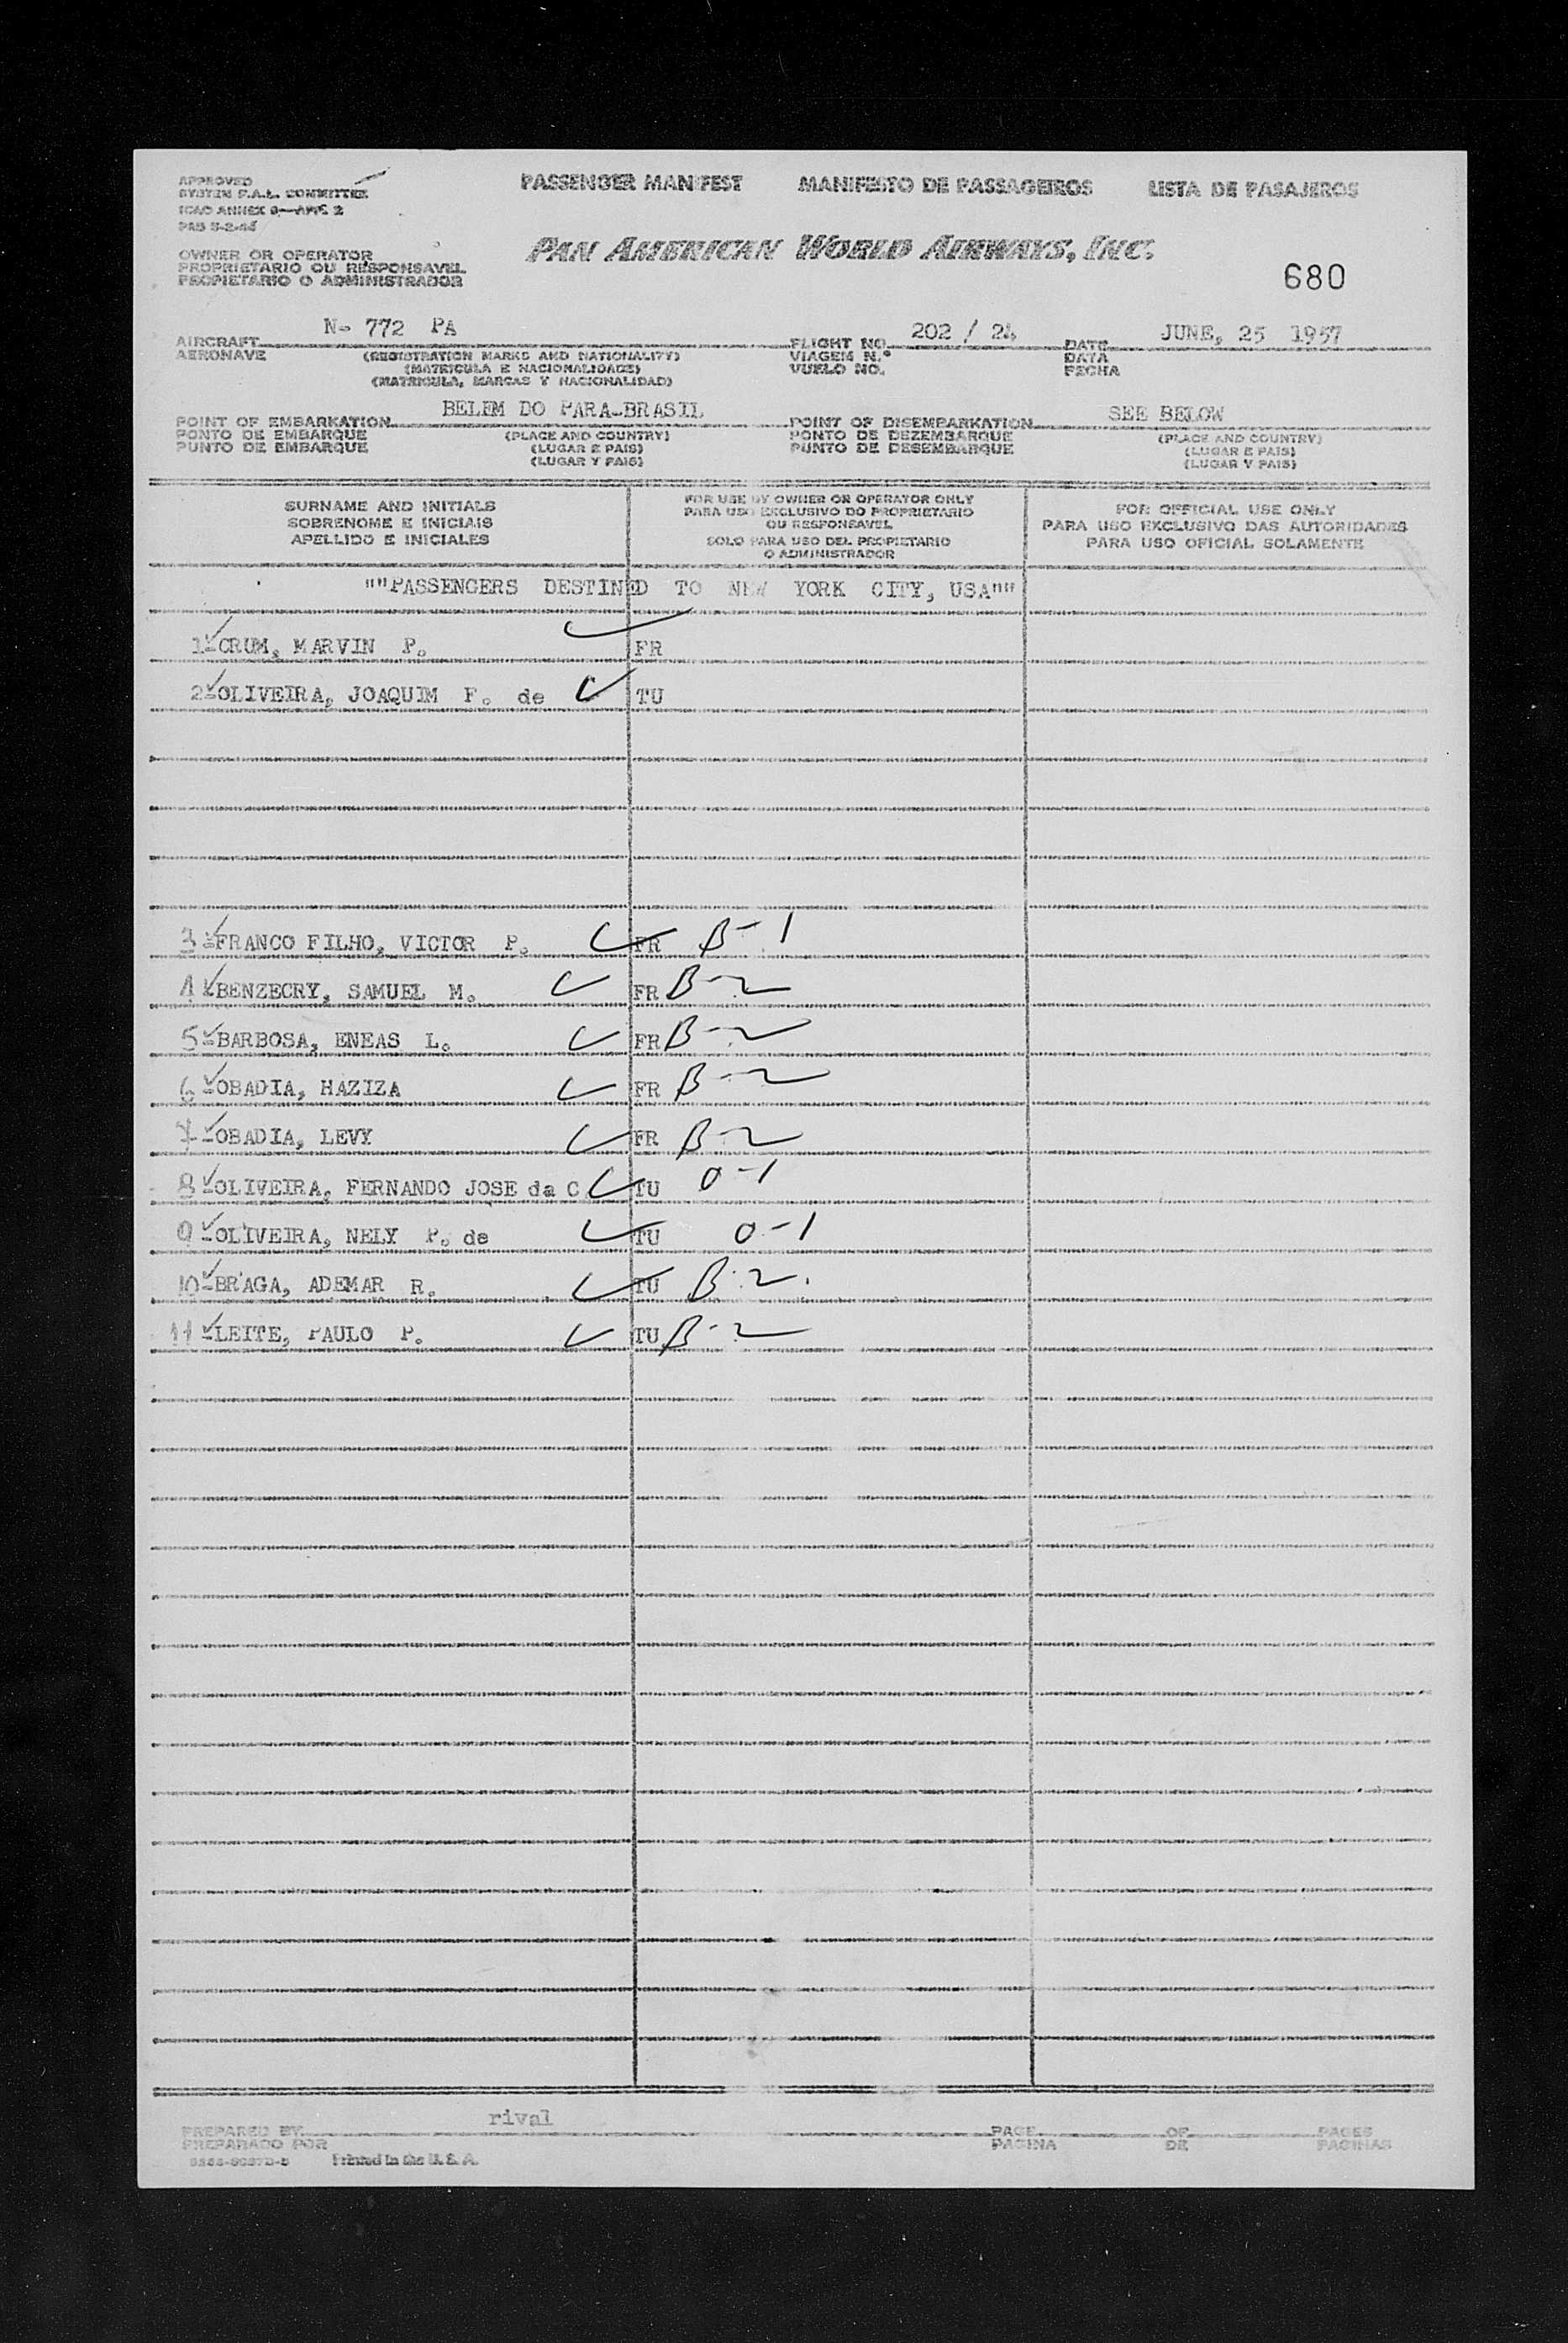 APPROVED
SYSTEM F.A.L. COMMITTEE
ICAO ANNEX 9—APPE 2
PASSENGER MANIFEST MANIFESTO DE PASSAGEIROS LISTA DE PASAJEROS
PAN AMERICAN WORLD AIRWAYS, INC.
OWNER OR OPERATOR
PROPRIETARIO OU RESPONSAVEL
PROPIETARIO O ADMINISTRADOR
680
AIRCRAFT N- 772 PA FLIGHT NO. 202 / 24 DATE JUNE, 25 1957
AERONAVE (REGISTRATION MARKS AND NATIONALITY) VIAGEM N.º DATA
(MATRICULA E NACIONALIDADE) VUELO NO. FECHA
(MATRICULA, MARCAS Y NACIONALIDAD)
POINT OF EMBARKATION BELEM DO PARA-BRASIL POINT OF DISEMBARKATION SEE BELOW
PONTO DE EMBARQUE (PLACE AND COUNTRY) PONTO DE DEZEMBARQUE (PLACE AND COUNTRY)
PUNTO DE EMBARQUE (LUGAR E PAIS) PUNTO DE DESEMBARQUE (LUGAR E PAIS)
(LUGAR Y PAIS) (LUGAR Y PAIS)
SURNAME AND INITIALS
SOBRENOME E INICIAIS
APELLIDO E INICIALES
FOR USE BY OWNER OR OPERATOR ONLY
PARA USO EXCLUSIVO DO PROPRIETARIO
OU RESPONSAVEL
SOLO PARA USO DEL PROPIETARIO
O ADMINISTRADOR
FOR OFFICIAL USE ONLY
PARA USO EXCLUSIVO DAS AUTORIDADES
PARA USO OFICIAL SOLAMENTE
""PASSENGERS DESTINED TO NEW YORK CITY, USA""
1-CRUM, MARVIN P. FR
2-OLIVEIRA, JOAQUIM F. de TU
3-FRANCO FILHO, VICTOR P. FR B-1
4-BENZECRY, SAMUEL M. FR B-2
5-BARBOSA, ENEAS L. FR B-2
6-OBADIA, HAZIZA FR B-2
7-OBADIA, LEVY FR B-2
8-OLIVEIRA, FERNANDO JOSE da C. TU O-1
9-OLIVEIRA, NELY P. de TU O-1
10-BRAGA, ADEMAR R. TU B-2.
11-LEITE, PAULO P. TU B-2
PREPARED BY rival PAGE OF PAGES
PREPARADO POR PAGINA DE PAGINAS
Printed in the U. S. A.